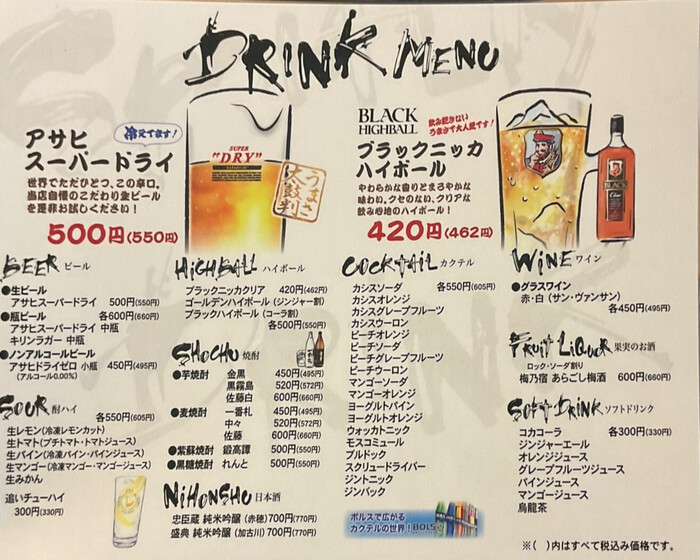 DRINK MENU
アサヒ
スーパードライ
冷えてます!
世界でただひとつ、この辛口。
当店自慢のこだわり金ビール
を是非お試しください!
500円(550円)
SUPER
"DRY"
うまさ
太鼓判
BLACK
HIGHBALL
飲み飽きない
うまさで大人気です!
ブラックニッカ
ハイボール
やわらかな香りとまろやかな
味わい。クセのない、クリアな
飲み心地のハイボール!
420円(462円)
BLACK
BEER ビール
●生ビール
アサヒスーパードライ 500円(550円)
●瓶ビール 各600円(660円)
アサヒスーパードライ 中瓶
キリンラガー 中瓶
●ノンアルコールビール
アサヒドライゼロ 小瓶 450円(495円)
(アルコール0.00%)
SOUR 酎ハイ
各550円(605円)
生レモン(冷凍レモンカット)
生トマト(プチトマト・トマトジュース)
生パイン(冷凍パイン・パインジュース)
生マンゴー(冷凍マンゴー・マンゴージュース)
生みかん
追いチューハイ
300円(330円)
HIGHBALL ハイボール
ブラックニッカクリア 420円(462円)
ゴールデンハイボール(ジンジャー割)
ブラックハイボール(コーラ割)
各500円(550円)
SHOCHU 焼酎
●芋焼酎 金黒 450円(495円)
黒霧島 520円(572円)
佐藤白 600円(660円)
●麦焼酎 一番札 450円(495円)
中々 520円(572円)
佐藤 600円(660円)
●紫蘇焼酎 鍛高譚 500円(550円)
●黒糖焼酎 れんと 500円(550円)
NIHONSHU 日本酒
忠臣蔵 純米吟醸(赤穂)700円(770円)
盛典 純米吟醸(加古川)700円(770円)
COCKTAIL カクテル
カシスソーダ 各550円(605円)
カシスオレンジ
カシスグレープフルーツ
カシスウーロン
ピーチオレンジ
ピーチソーダ
ピーチグレープフルーツ
ピーチウーロン
マンゴーソーダ
マンゴーオレンジ
ヨーグルトパイン
ヨーグルトオレンジ
ウォッカトニック
モスコミュール
ブルドック
スクリュードライバー
ジントニック
ジンバック
ボルスで広がる
カクテルの世界!BOLS
WINE ワイン
●グラスワイン
赤・白(サン・ヴァンサン)
各450円(495円)
FRUIT LIQUOR 果実のお酒
ロック・ソーダ割り
梅乃宿 あらごし梅酒 600円(660円)
SOFT DRINK ソフトドリンク
コカコーラ 各300円(330円)
ジンジャーエール
オレンジジュース
グレープフルーツジュース
パインジュース
マンゴージュース
烏龍茶
※( )内はすべて税込み価格です。